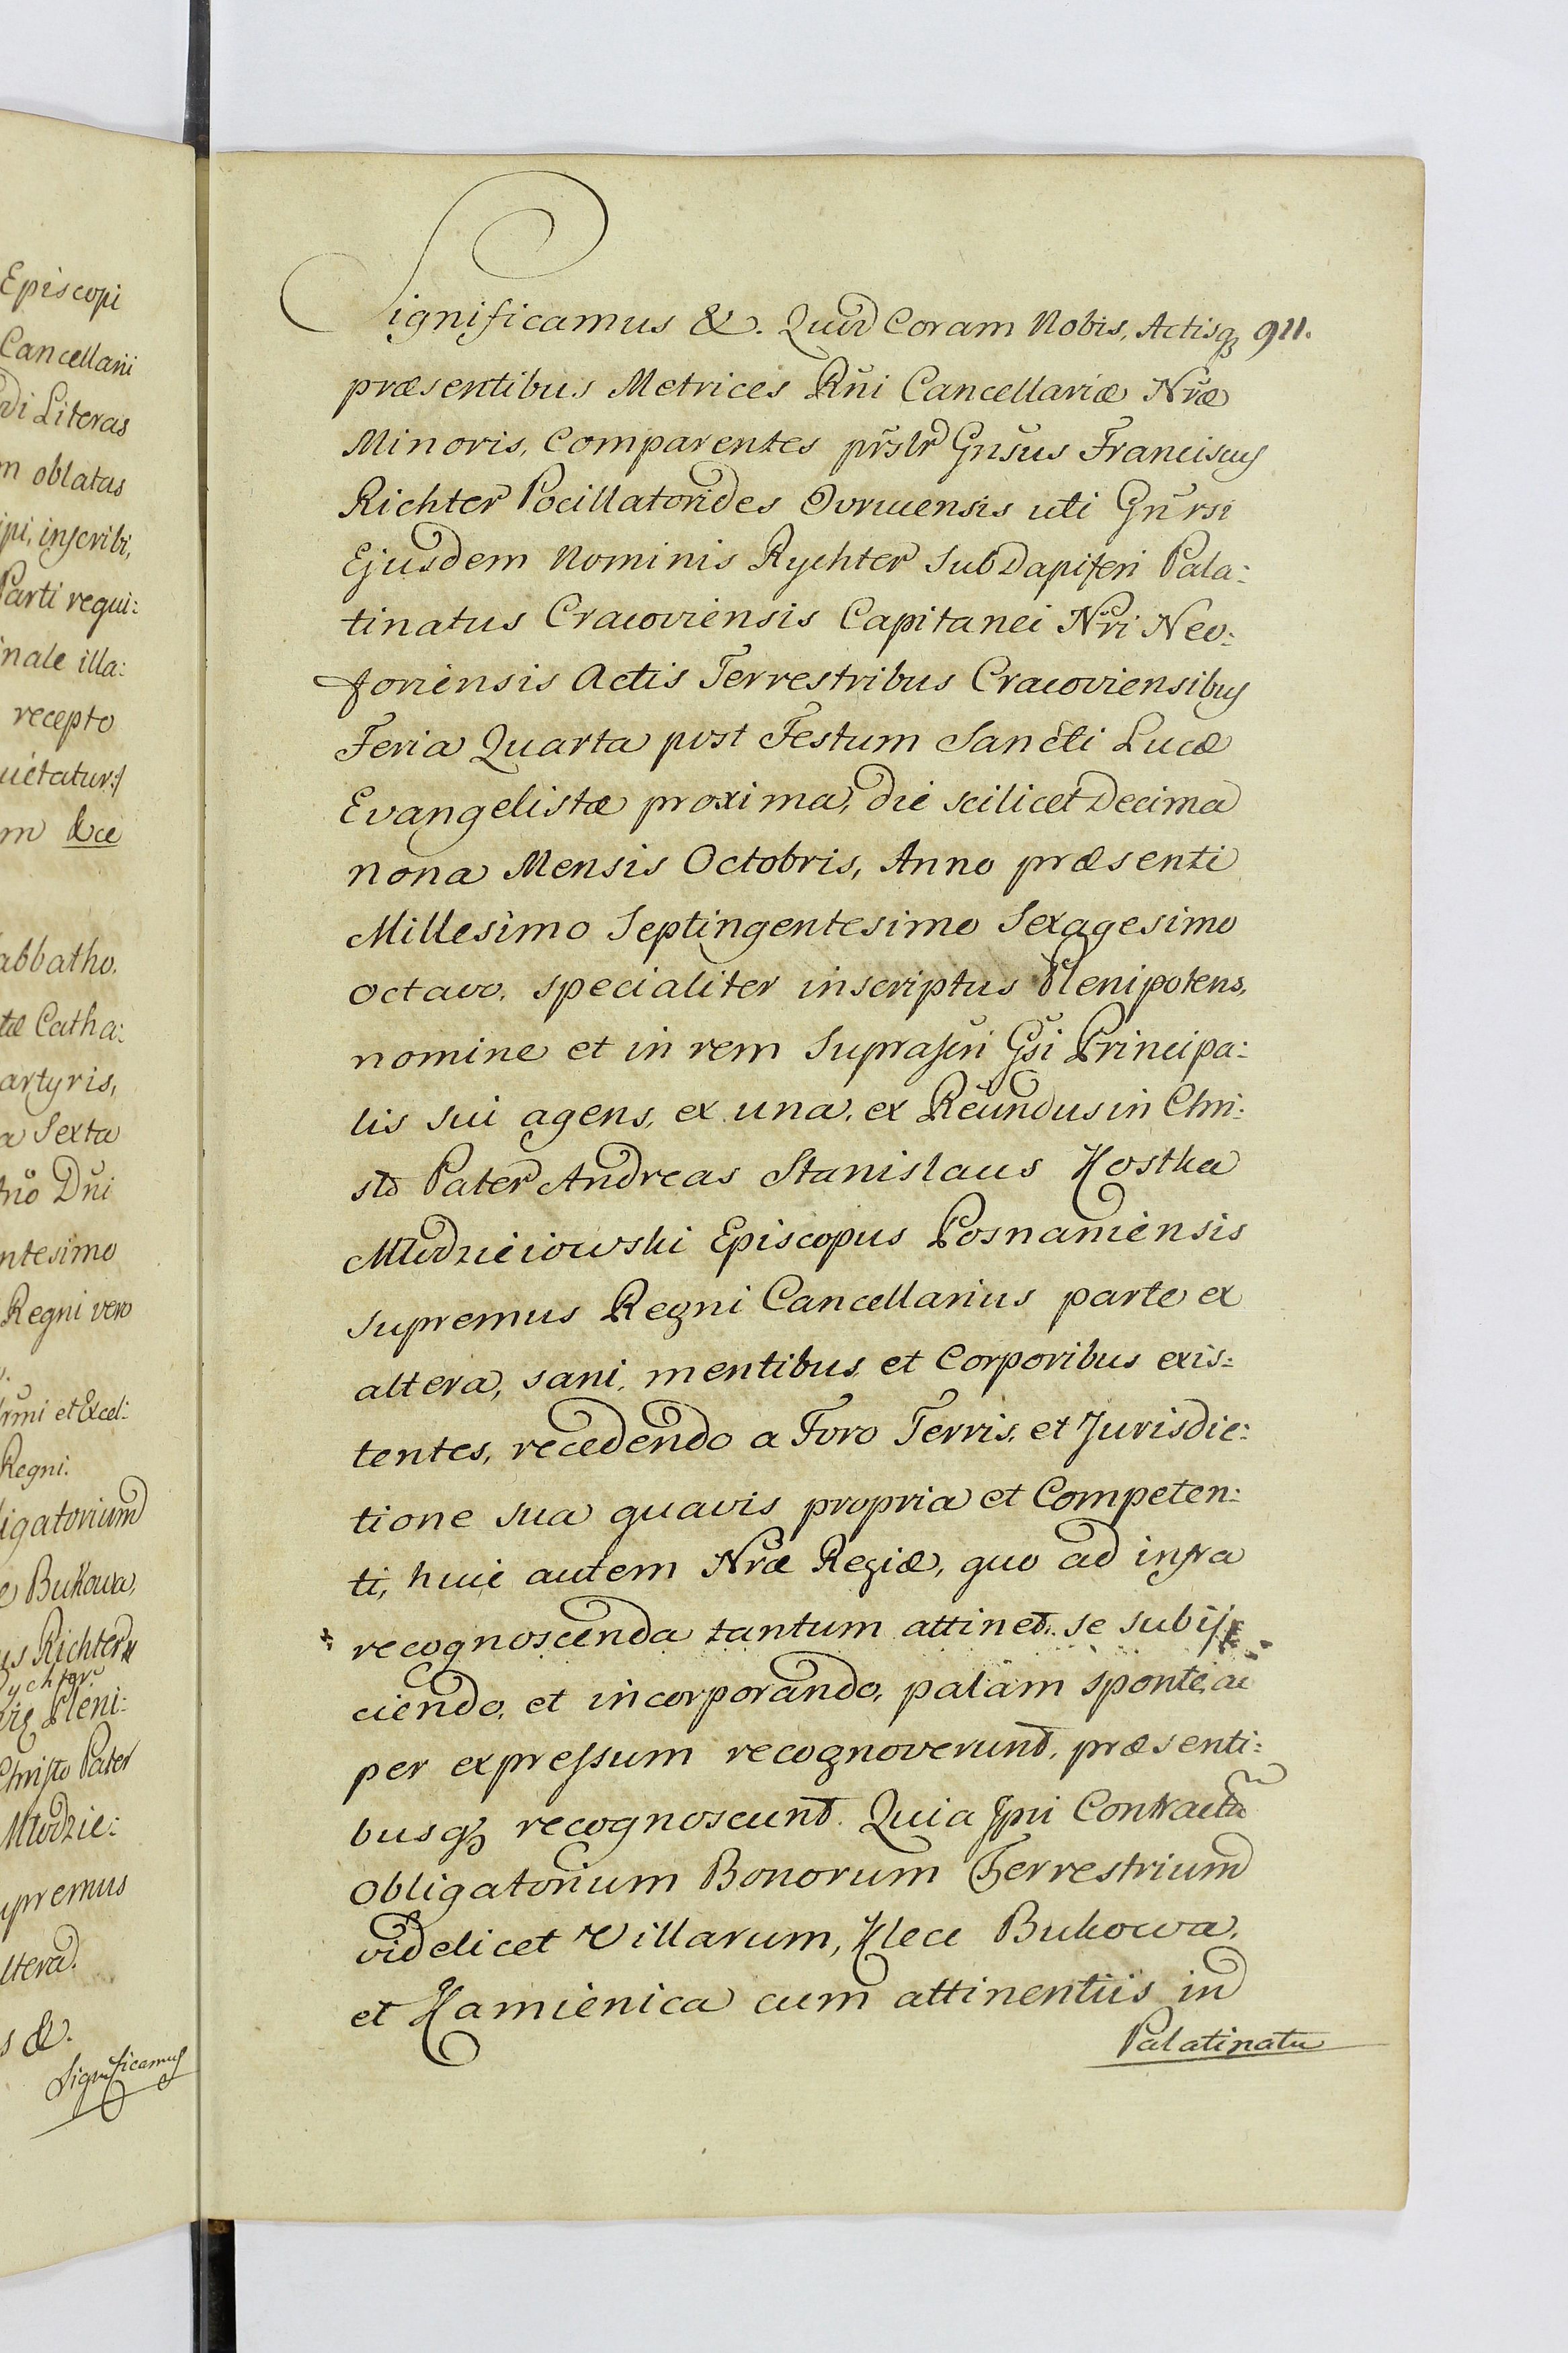 Episcopi
Cancellarii
di Literas
m oblatus
ipi, inscribi,
Parti requi:
inale illa:
recepto
uietatur:/
m &ce
abbatho.
tæ Catha:
artyris,
a Sexta
nõ Dni
ntesimo
Regni vero
rmi et Excel:
Regni.
ligatorium
Bukowa,
us Richter
Rychter
Pleni:
Christo Pater
Mlodzie:
upremus
ltera.
s &.
Significamus
Significamus &. Quod Coram Nobis, Actisq3 911.
præsentibus Metrices Rni Cancellariæ Nræ
Minoris, Comparentes prslr Gnsus Franciscus
Richter Pocillatorides Ovrucensis uti Gnrsi
Ejusdem Nominis Rychter SubDapiferi Pala:
tinatus Cracoviensis Capitanei Nri Neo:
foriensis Actis Terrestribus Cracoviensibus
Feria Quarta post Festum Sancti Lucæ
Evangelistæ proxima, die scilicet Decima
nona Mensis Octobris, Anno præsenti
Millesimo Septingentesimo Sexagesimo
octavo, specialiter inscriptus Plenipotens,
nomine et in rem Suprascri Gsi Principa:
lis sui agens, ex una, ex Reundus in Chri:
sto Pater Andreas Stanislaus Kostka
Mlodzieiowski Episcopus Posnaniensis
supremus Regni Cancellarius parte ex
altera, sani, mentibus et Corporibus exis:
tentes, recedendo a Foro Terris, et Jurisdic:
tione sua quavis propria et Competen:
ti, huic autem Nræ Regiæ, quo ad infra
recognoscenda tantum attinet, se subij
ciendo, et incorporando, palam sponte, ac
per expressum recognoverunt, præsenti:
busq3 recognoscunt. Quia Ipni Contractũ
Obligatorium Bonorum Terrestrium
videlicet Villarum, Klece Bukowa,
et Kamienica cum attinentiis in
Palatinatu